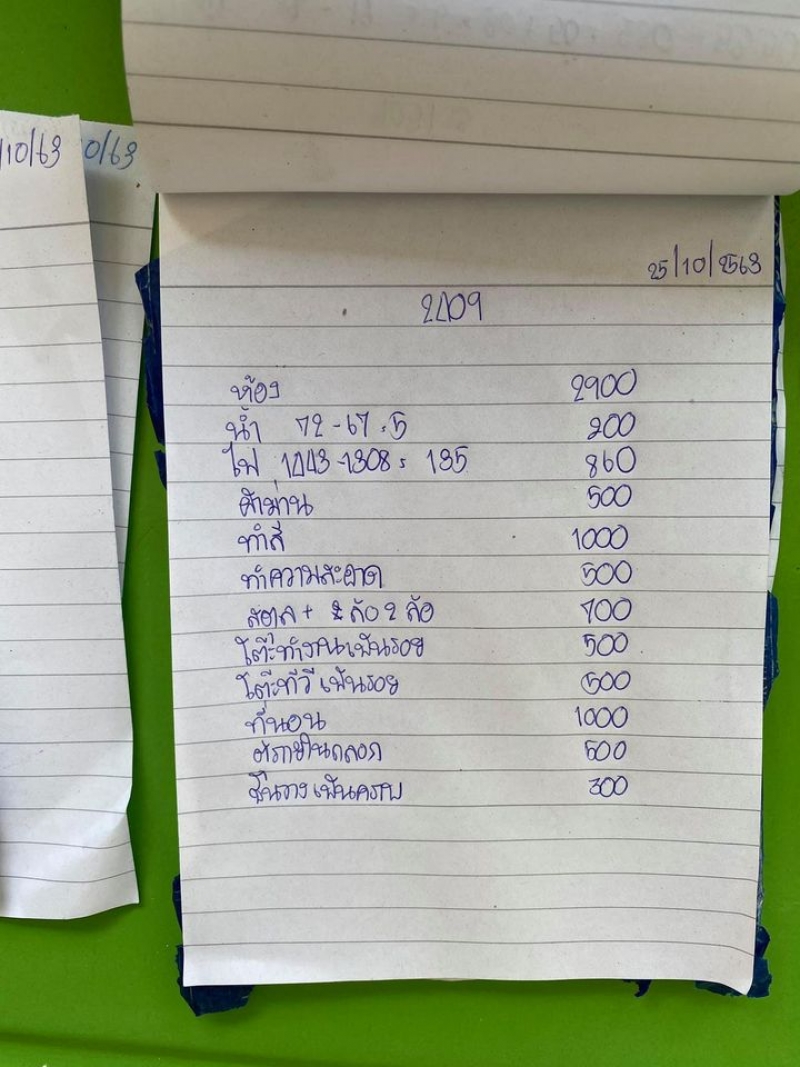 /10/63
0/63
25/10/2563
2409
ห้อง 2900
น้ำ 72-67=5 200
ไฟ 1443-1308= 135 860
ผ้าม่าน 500
ทำสี 1000
ทำความสะอาด 500
+ 2 ล้อ 700
โต๊ะทำงานเป็นรอย 500
โต๊ะทีวี เป็นรอย 500
ที่นอน 1000
500
ชั้นวาง เป็นคราบ 300